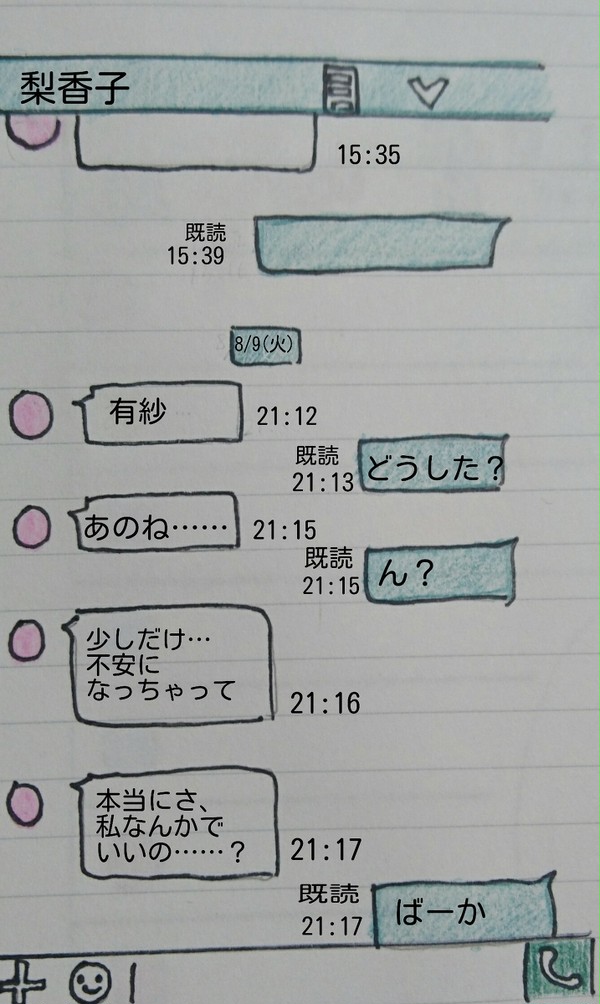 梨香子
15:35
既読
15:39
8/9(火)
有紗
21:12
既読
21:13
どうした？
あのね……
21:15
既読
21:15
ん？
少しだけ…
不安に
なっちゃって
21:16
本当にさ、
私なんかで
いいの……？
21:17
既読
21:17
ばーか